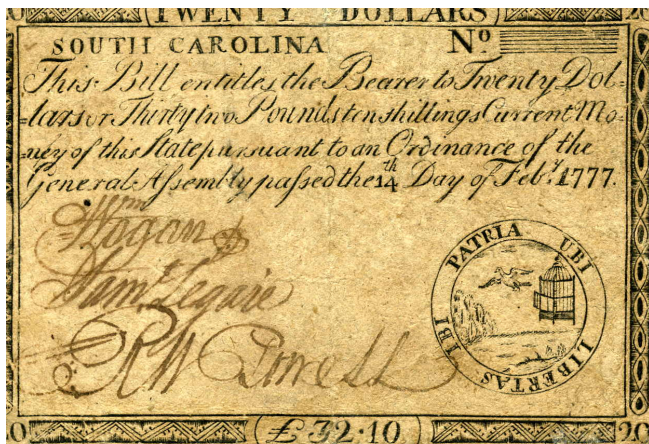 TWENTY DOLLARS
SOUTH CAROLINA Nº
This Bill entitles the Bearer to Twenty Dol-
-lars or Thirty two Pounds ten shillings Current Mo-
-ney of this State pursuant to an Ordinance of the
General Assembly passed the 14th Day of Feby. 1777.
Wm Logan
Saml. Legare
RW Powell
PATRIA UBI LIBERTAS IBI
£32·10
20